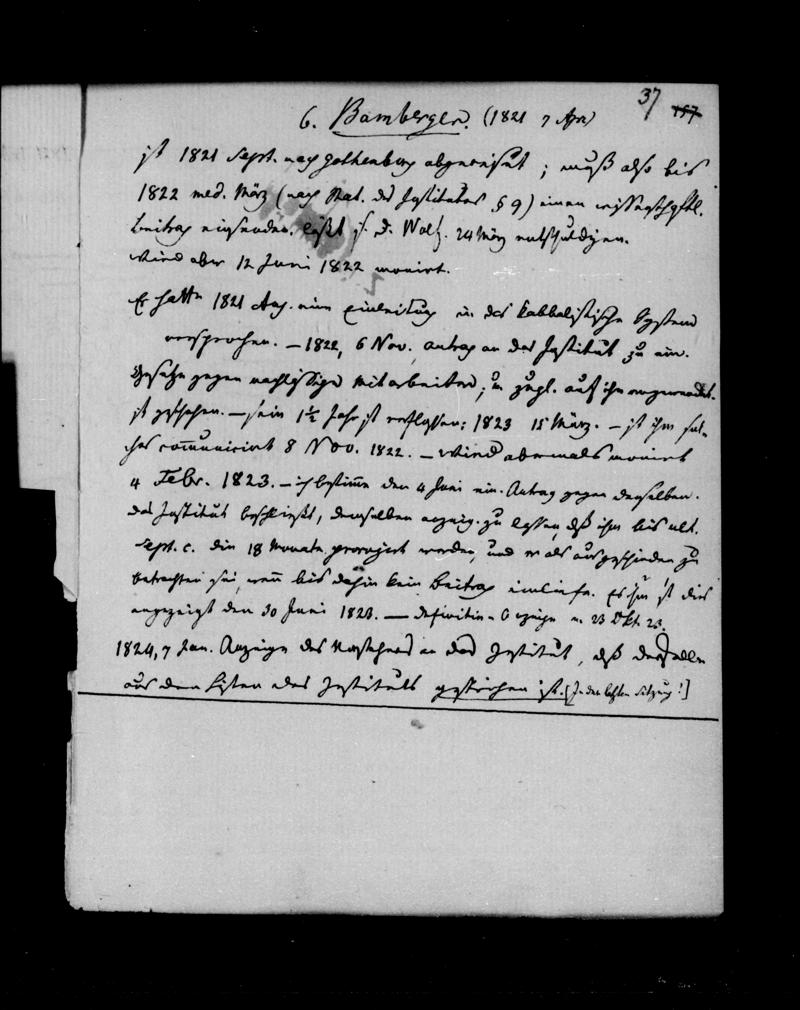 37 157
6. Bamberger. (1821 7 Apr)
ist 1821 Sept. nach Gothenburg abgereist; muß also bis
1822 med. März (nach Stat. des Institutes § 9) einen wissenschaftl.
Beitrag einsenden. läßt s. d. Wolf. 24 März entschuldigen.
Wird aber 12 Juni 1822 monirt.
Er hatte 1821 Aug. eine Einleitung in das kabbalistische System
versprochen. — 1822, 6 Nov. Antrag an das Institut zu ein.
Gesetze gegen nachlässige Mitarbeiter; u. zugl. auf ihn angewendet.
ist geschehen. — sein 1½ Jahr ist verflossen: 1823 15 März. — ist ihm sol-
ches communicirt 8 Nov. 1822. — Wird abermals monirt
4 Febr. 1823. — ich bestimme den 4 Juni ein. Antrag gegen denselben.
das Institut beschließt, demselben anzeig. zu lassen, dß ihm bis ult.
Sept. c. die 18 Monate prorogirt werden, und er als ausgeschieden zu
betrachten sei, wenn bis dahin kein Beitrag einliefe. Es ist dies
angezeigt den 30 Juni 1823. — definitive Anzeige v. 23 Okt. 23.
1824, 7 Jan. Anzeige des Vorstehers an das Institut, dß derselbe
aus den Listen des Instituts gestrichen ist. [In der letzten Sitzung!]